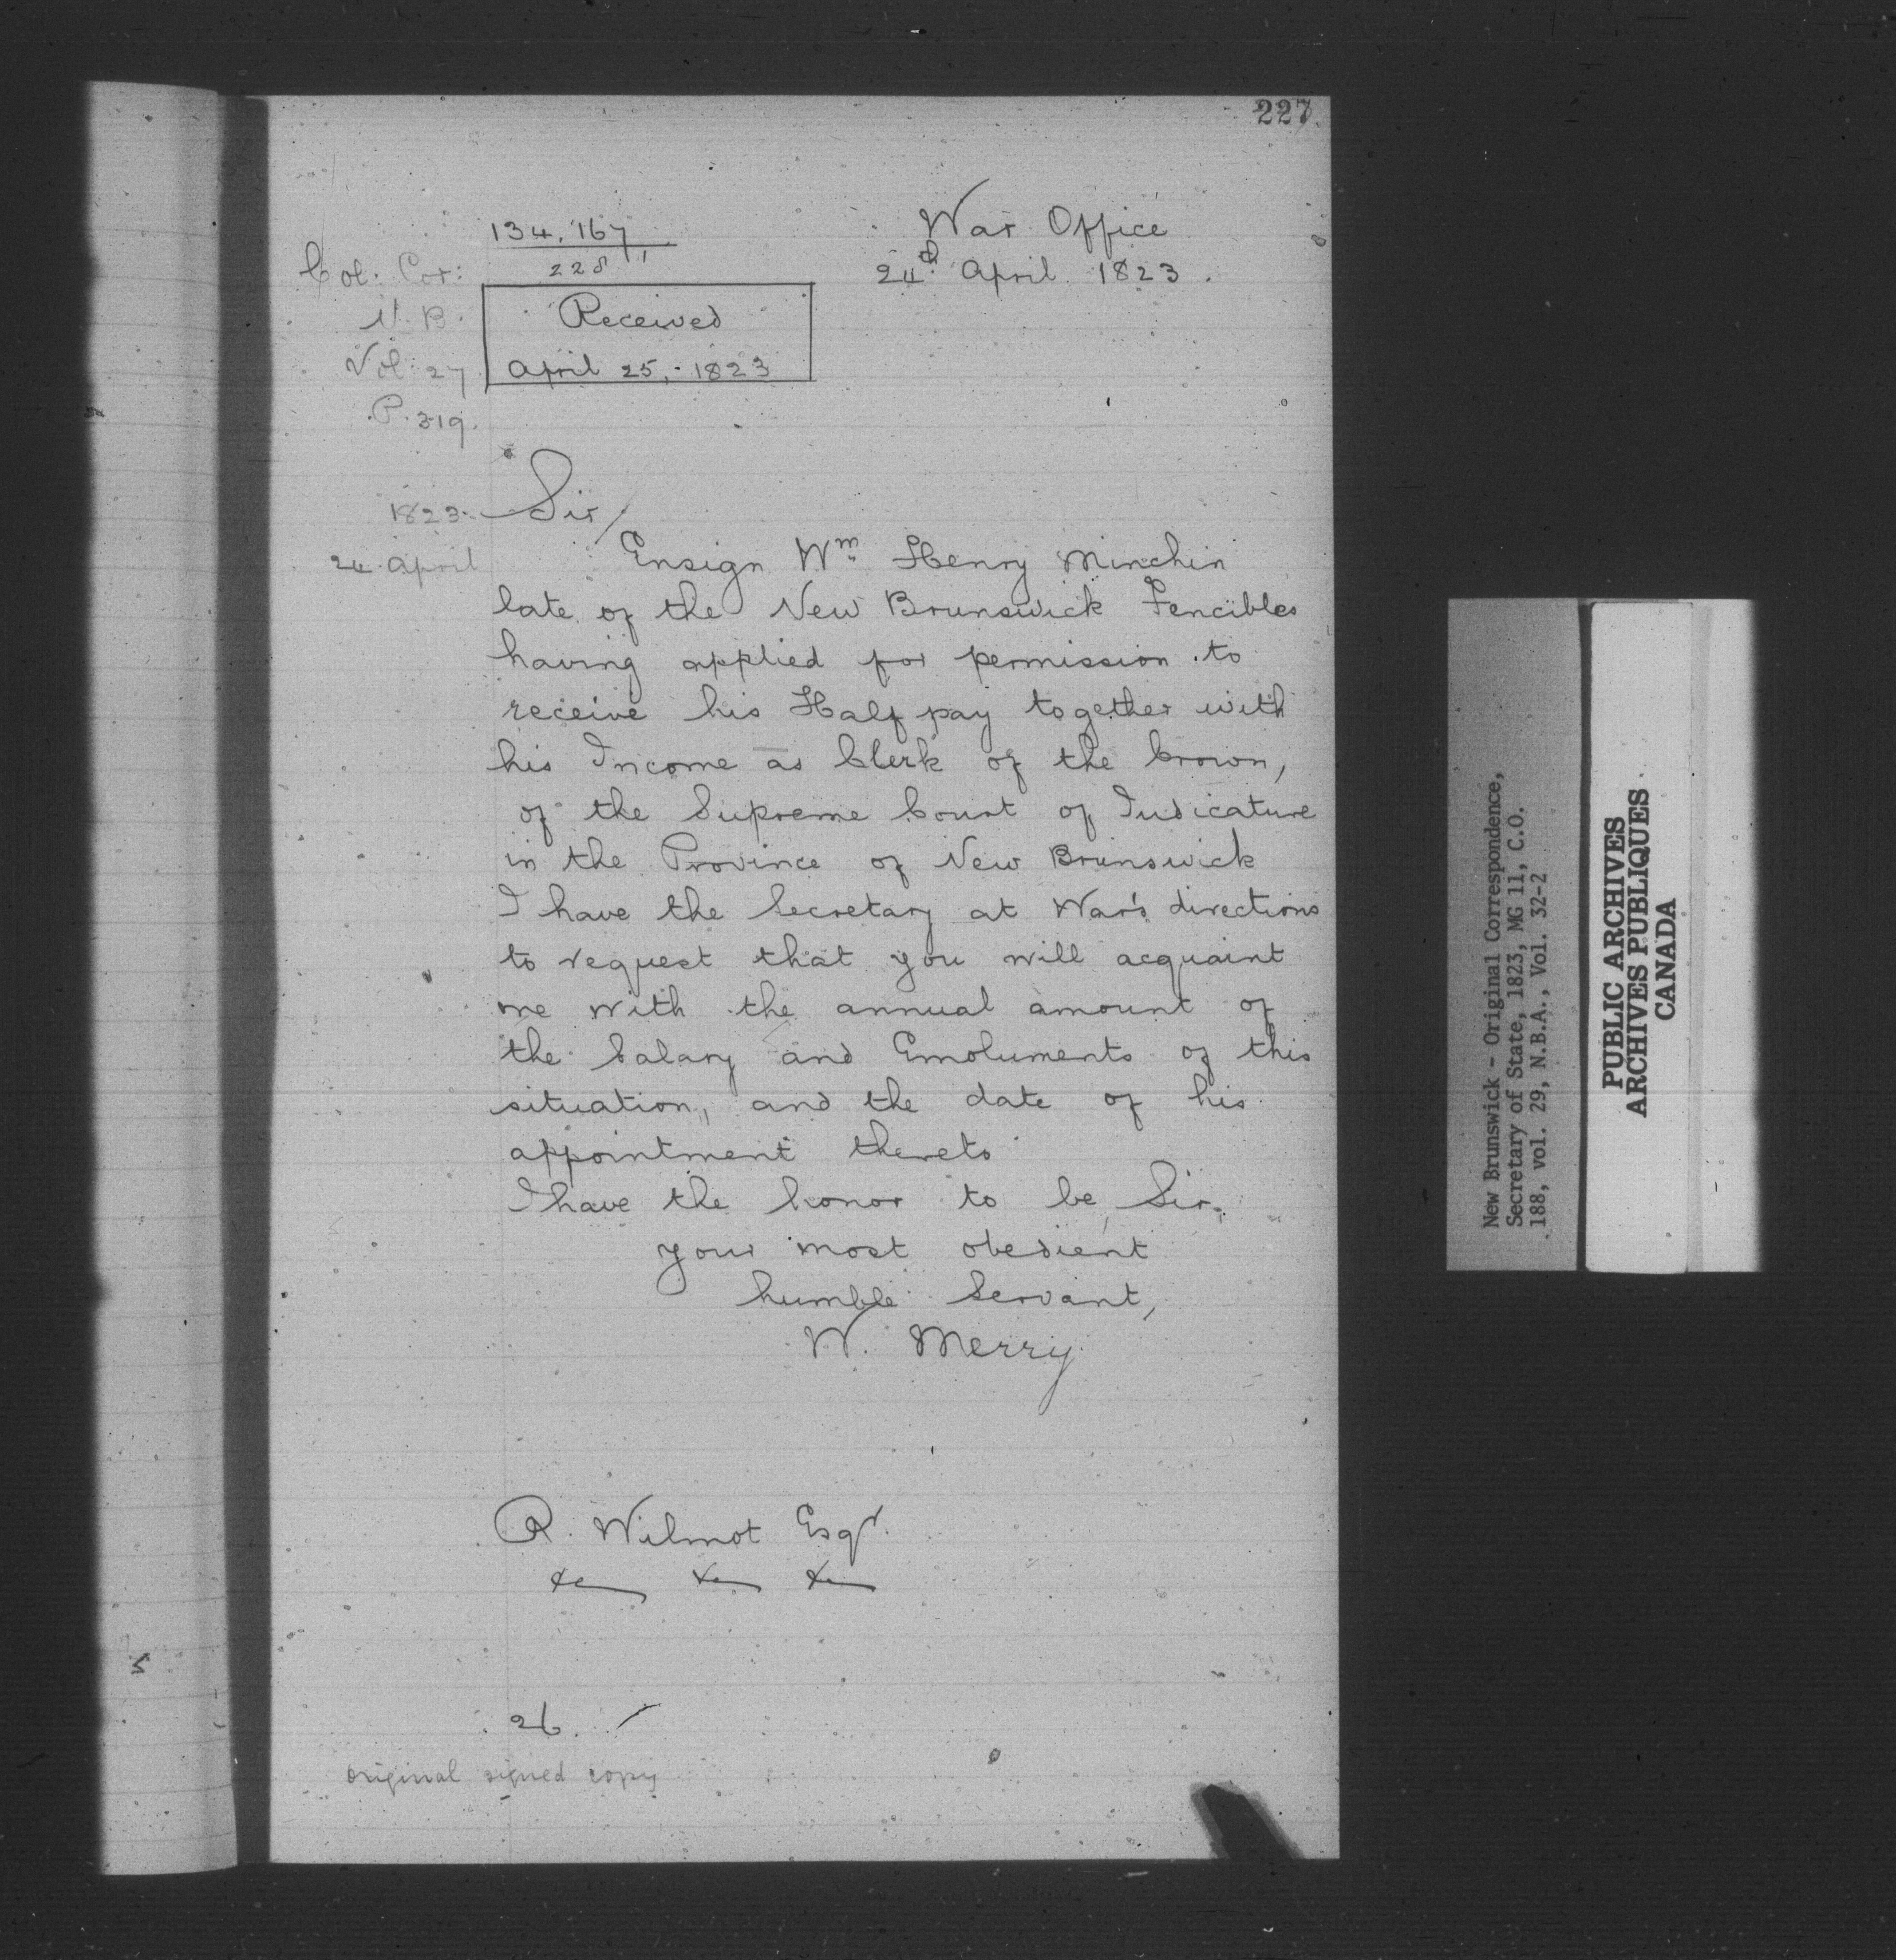 227
134.167/1
228
War Office
24th April 1823.
Col: Cor:
N.B.
Vol: 27
P. 319.
Received
April 25, - 1823
1823.
24 April
Sir/
Ensign Wm Henry Minchin
late of the New Brunswick Fencibles
having applied for permission to
receive his Half pay together with
his Income as Clerk of the Crown,
of the Supreme Court of Judicature
in the Province of New Brunswick
I have the Secretary at War's directions
to request that you will acquaint
me with the annual amount of
the Salary and Emoluments of this
situation, and the date of his
appointment thereto
I have the honor to be, Sir,
your most obedient
humble Servant,
W. Merry
R. Wilmot Esqr.
&c &c &c
26.
original signed copy
New Brunswick - Original Correspondence,
Secretary of State, 1823, MG 11, C.O.
188, vol. 29, N.B.A., Vol. 32-2
PUBLIC ARCHIVES
ARCHIVES PUBLIQUES
CANADA